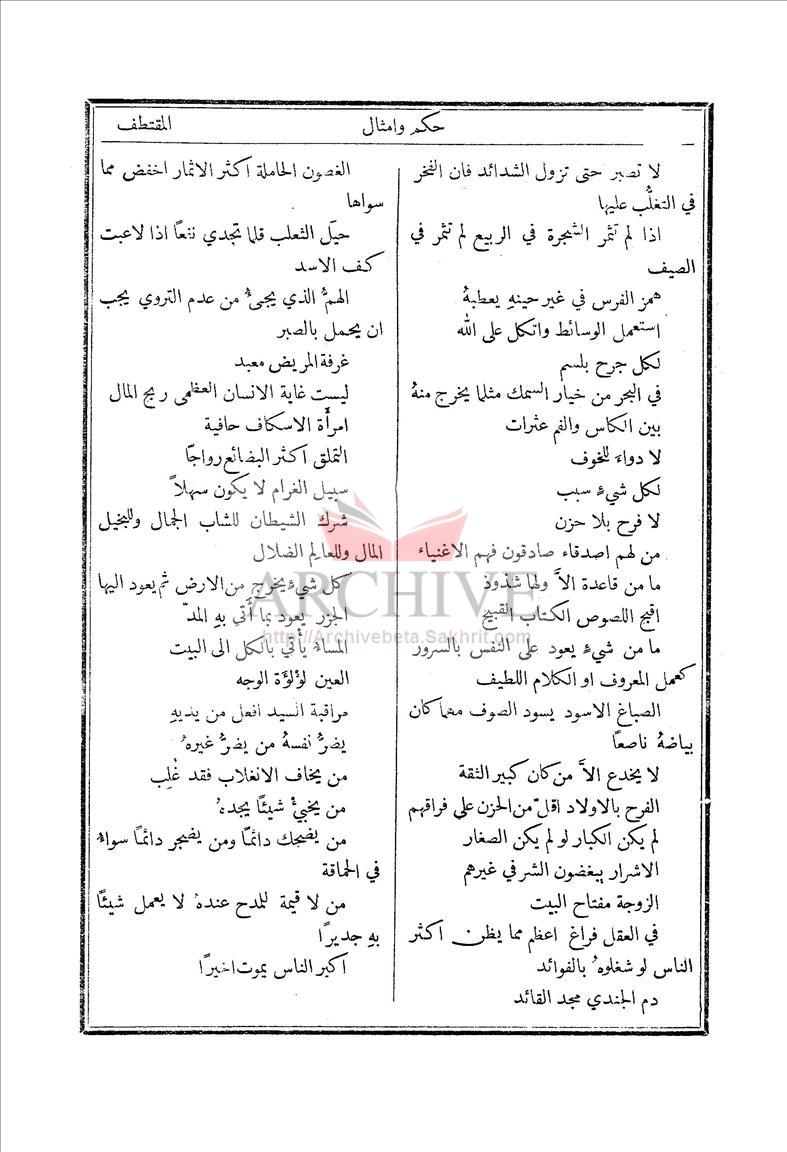 حكم وامثال
المقتطف
لا تصبر حتى تزول الشدائد فان الفخر
في التغلُّب عليها
اذا لم تثمر الشجرة في الربيع لم تثمر في
الصيف
همز الفرس في غير حينهِ يعطبهُ
استعمل الوسائط واتكل على الله
لكل جرح بلسم
في البحر من خيار السمك مثلما يخرج منهُ
بين الكاس والفم عثرات
لا دواءَ للخوف
لكل شيءٍ سبب
لا فرح بلا حزن
من لهم اصدقاء صادقون فهم الاغنياء
ما من قاعدة الاَّ ولها شذوذ
اقبح اللصوص الكتاب القبيح
ما من شيءٍ يعود على النفس بالسرور
كعمل المعروف او الكلام اللطيف
الصباغ الاسود يسود الصوف مهما كان
بياضهُ ناصعًا
لا يخدع الاَّ من كان كبير الثقة
الفرح بالاولاد اقلّ من الحزن على فراقهم
لم يكن الكبار لو لم يكن الصغار
الاشرار يبغضون الشر في غيرهم
الزوجة مفتاح البيت
في العقل فراغ اعظم مما يظن اكثر
الناس لو شغلوهُ بالفوائد
دم الجندي مجد القائد
الغصون الحاملة اكثر الاثمار اخفض مما
سواها
حيَل الثعلب قلما تجدي نفعًا اذا لاعبت
كف الاسد
الهمُّ الذي يجيءُ من عدم التروي يجب
ان يحمل بالصبر
غرفة المريض معبد
ليست غاية الانسان العظمى ربح المال
امرأَة الاسكاف حافية
التملق اكثر البضائع رواجًا
سبيل الغرام لا يكون سهلاً
شرك الشيطان للشاب الجمال وللبخيل
المال وللعالِم الضلال
كل شيءٍ يخرج من الارض ثم يعود اليها
الجزر يعود بما أَتي بهِ المدّ
المساءُ يأْتي بالكل الى البيت
العين لؤْلؤَة الوجه
مراقبة السيد افعل من يديهِ
يضرُّ نفسهُ من يضرُّ غيرهُ
من يخاف الانغلاب فقد غُلِب
من يخبئْ شيئًا يجدهُ
من يضحك دائمًا ومن يضجر دائمًا سواءٌ
في الحماقة
من لا قيمة للمدح عندهُ لا يعمل شيئًا
بهِ جديرًا
اكبر الناس يموت اخيرًا
ARCHIVE
http://Archivebeta.Sakhrit.com